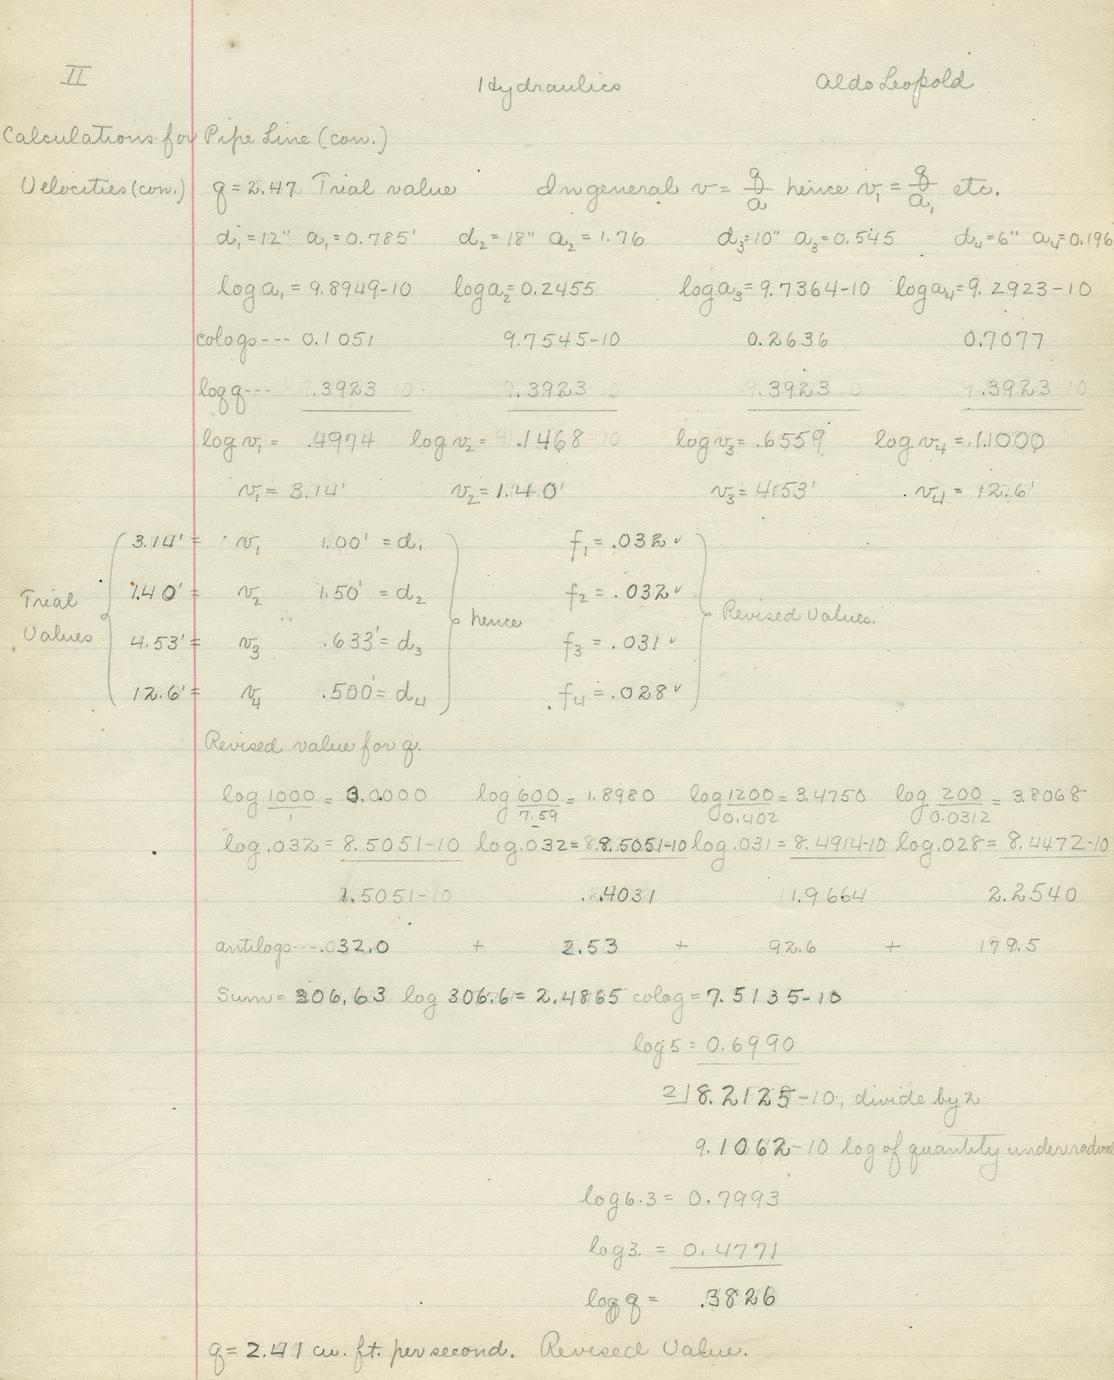 II Hydraulics Aldo Leopold
Calculations for Pipe Line (con.)
Velocities (con.) q = 2.47 Trial value In general v = q/a hence v₁ = q/a₁ etc.
d₁=12" a₁=0.785' d₂=18" a₂=1.76 d₃=10" a₃=0.545 d₄=6" a₄=0.196
log a₁ = 9.8949-10 log a₂=0.2455 log a₃=9.7364-10 log a₄=9.2923-10
cologs--- 0.1051 9.7545-10 0.2636 0.7077
log q--- .3923 .3923 .3923 .3923
log v₁ = .4974 log v₂ = .1468 log v₃= .6559 log v₄ = 1.1000
v₁ = 3.14' v₂ = 1.40' v₃ = 4.53' v₄ = 12.6'
3.14' = v₁ 1.00' = d₁ f₁ = .032 ✓
1.40' = v₂ 1.50' = d₂ f₂ = .032 ✓
Trial Values hence Revised Values.
4.53' = v₃ .633' = d₃ f₃ = .031 ✓
12.6' = v₄ .500' = d₄ f₄ = .028 ✓
Revised value for q.
log 1000/1 = 3.0000 log 600/7.59 = 1.8980 log 1200/0.402 = 3.4750 log 200/0.0312 = 3.8068
log .032 = 8.5051-10 log .032 = 8.5051-10 log .031 = 8.4914-10 log .028 = 8.4472-10
1.5051 .4031 1.9664 2.2540
antilogs--- 32.0 + 2.53 + 92.6 + 179.5
Sum = 306.63 log 306.6 = 2.4865 colog = 7.5135-10
log 5 = 0.6990
2|8.2125-10, divide by 2
9.1062-10 log of quantity under radical
log 6.3 = 0.7993
log 3. = 0.4771
log q = .3826
q = 2.41 cu. ft. per second. Revised Value.